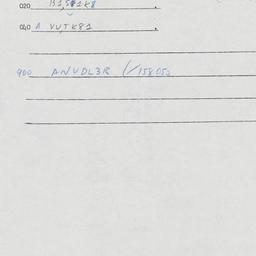 020 B1,581k8
040 A VUTK81
900 ANVDL3R (/15805)